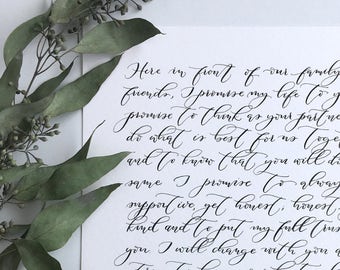 Here in front of our family
friends, I promise my life to y
promise to think as your partne
do what is best for us toge
and to know that you will do
same I promise to alway
supportive, yet honest, honest,
kind and to put my full trus
you. I will change with you a